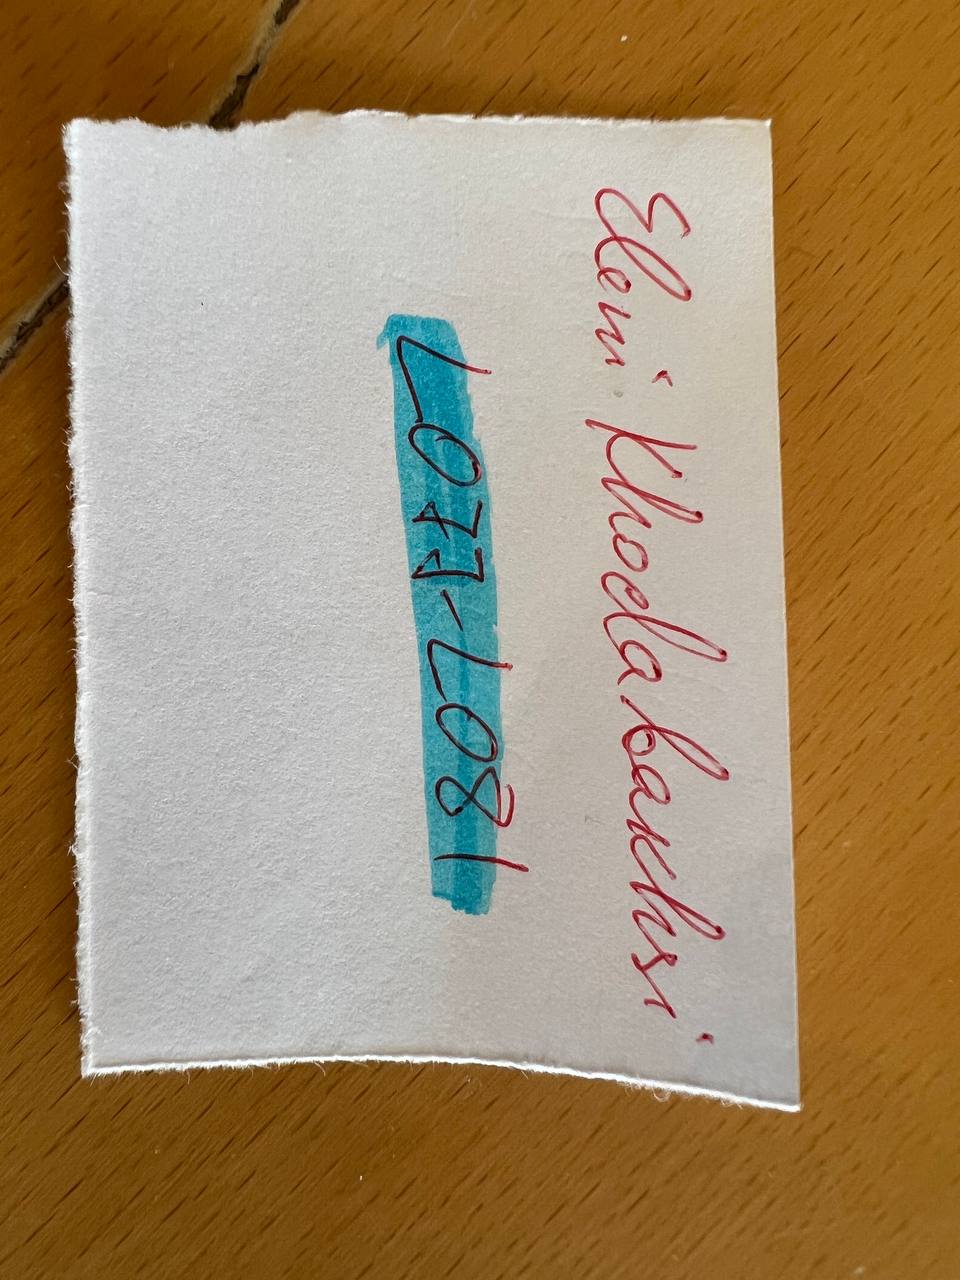 Eleni Khodabakhsi
L07J-L081